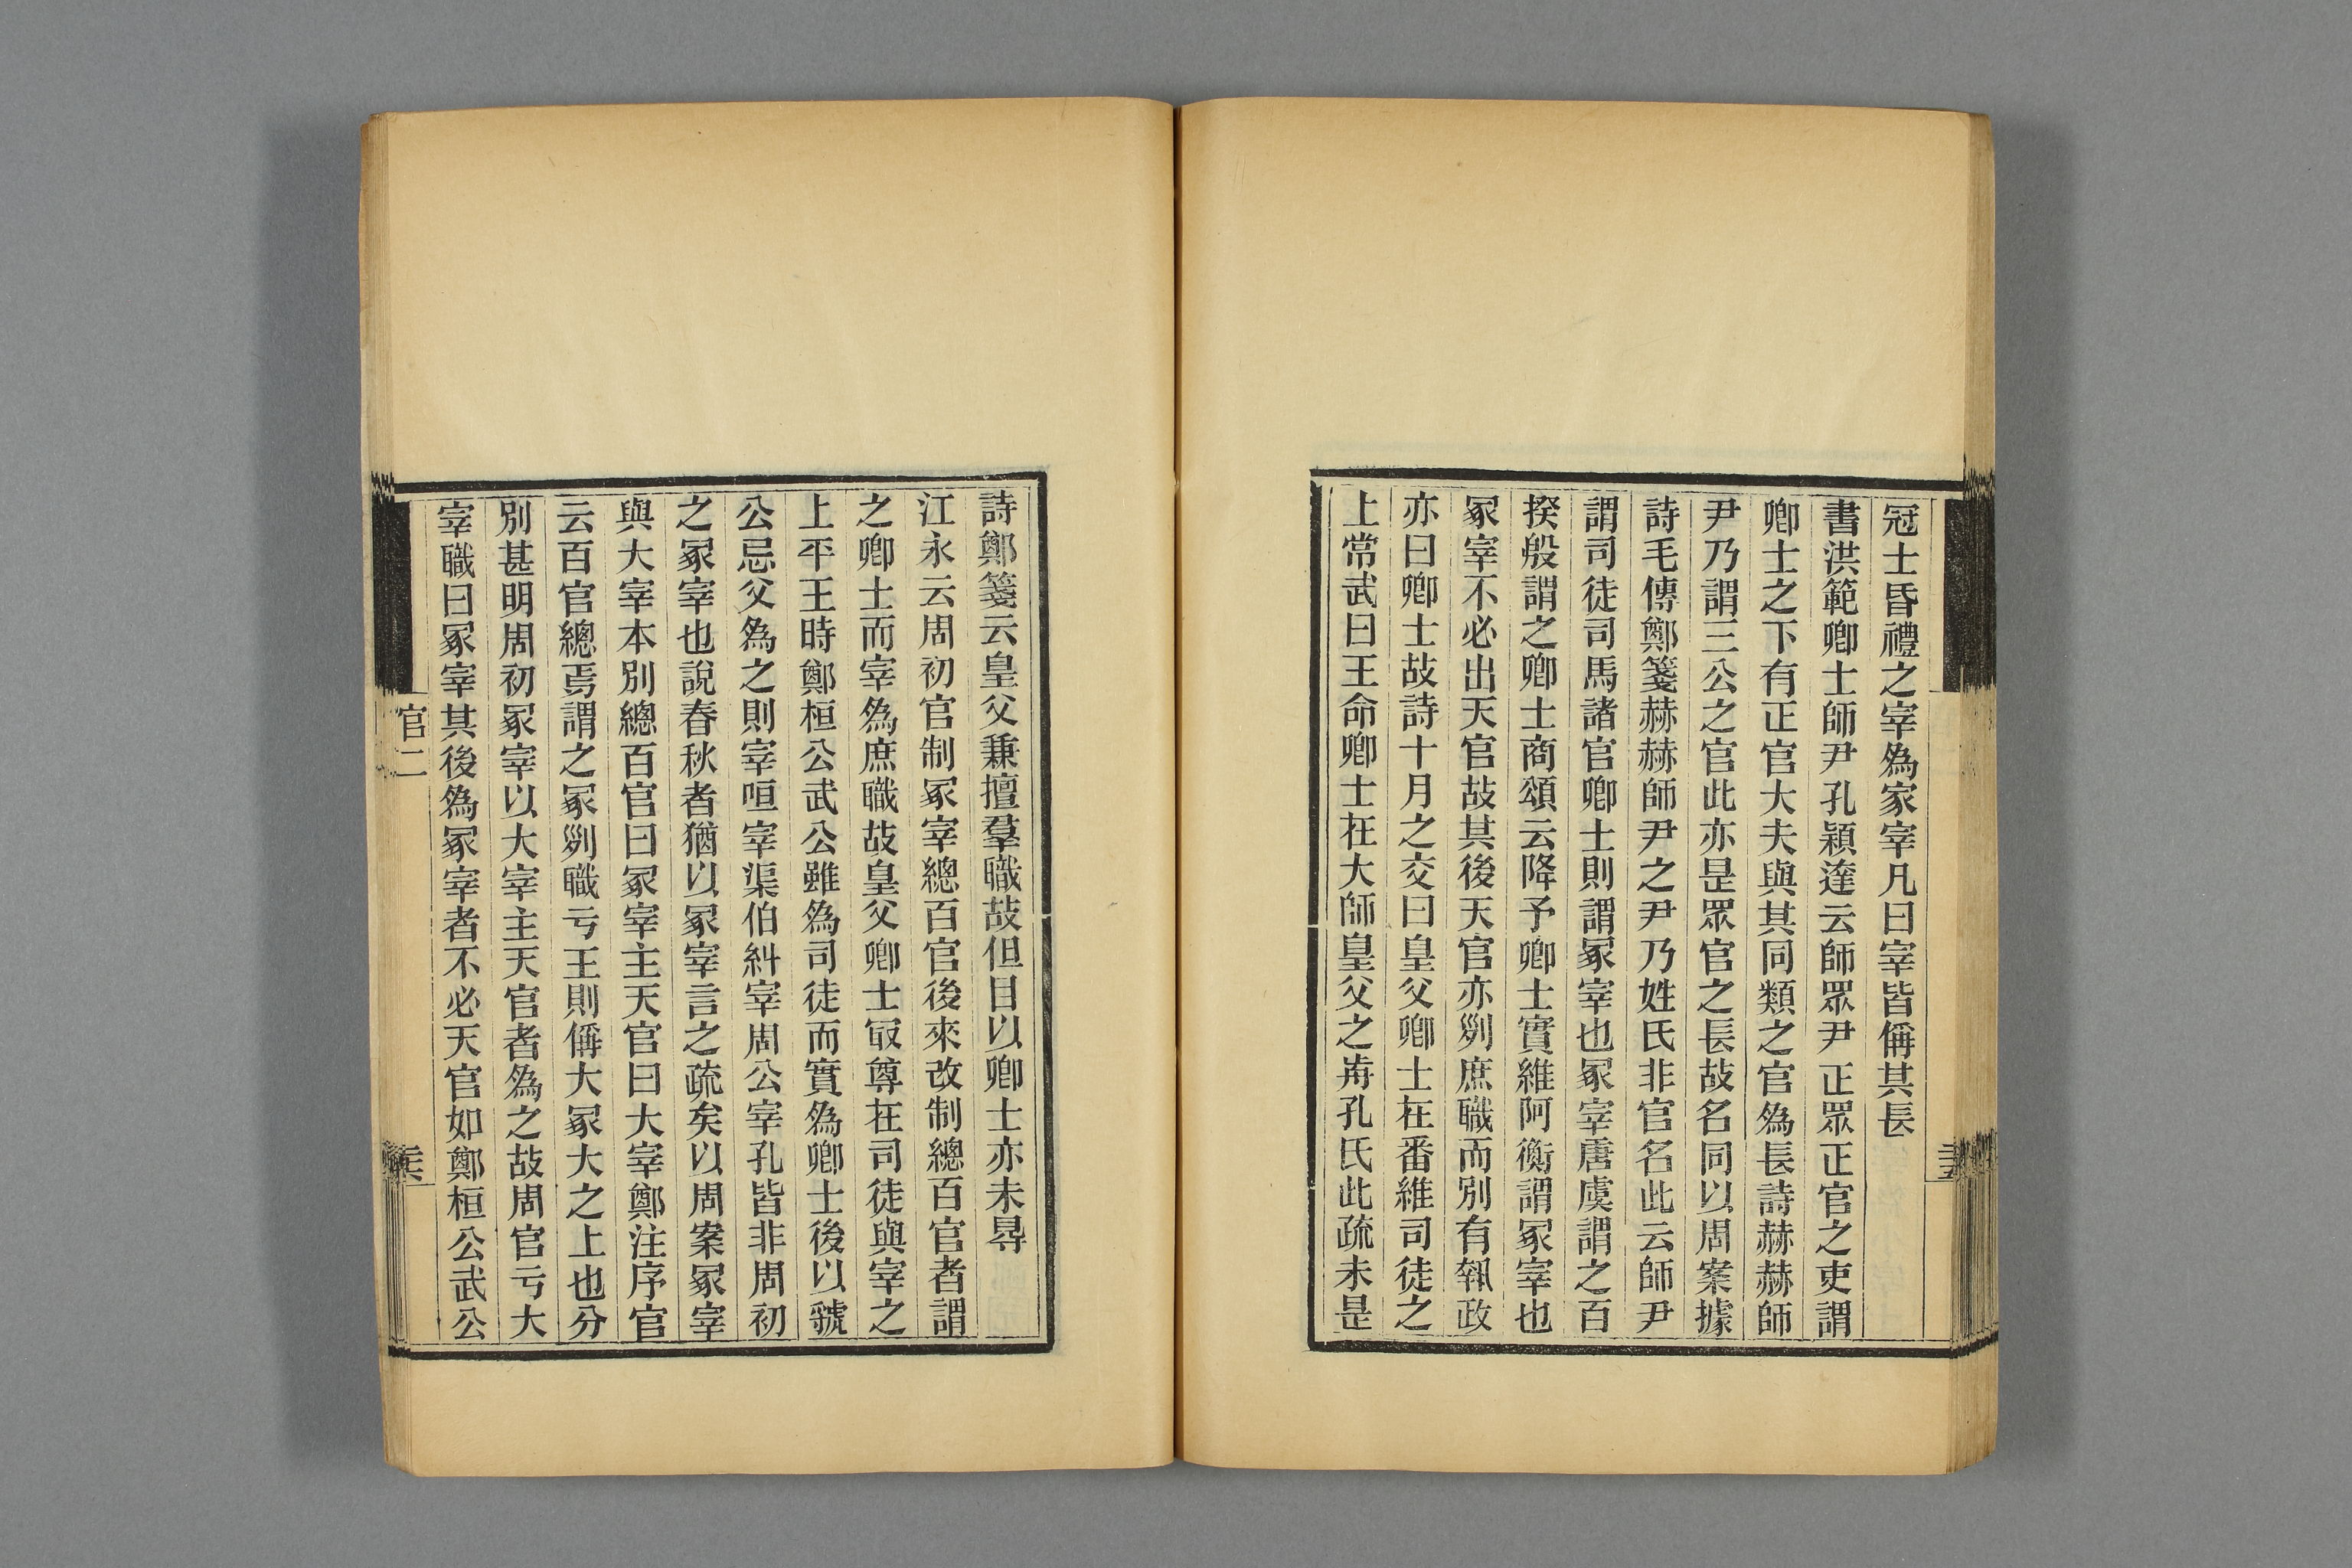 冠士昏禮之宰爲家宰凡曰宰皆偁其長
書洪範卿士師尹孔穎達云師眾尹正眾正官之吏謂
卿士之下有正官大夫與其同類之官爲長詩赫赫師
尹乃謂三公之官此亦是眾官之長故名同以周案據
詩毛傳鄭箋赫赫師尹之尹乃姓氏非官名此云師尹
謂司徒司馬諸官卿士則謂冢宰也冢宰唐虞謂之百
揆殷謂之卿士商頌云降予卿士實維阿衡謂冢宰也
冢宰不必出天官故其後天官亦劉庶職而別有執政
亦曰卿士故詩十月之交曰皇父卿士在番維司徒之
上常武曰王命卿士在大師皇父之歬孔氏此疏未是
詩鄭箋云皇父兼擅羣職故但目以卿士亦未㝵
江永云周初官制冢宰總百官後來改制總百官者謂
之卿士而宰爲庶職故皇父卿士㝡尊在司徒與宰之
上平王時鄭桓公武公雖爲司徒而實爲卿士後以虢
公忌父爲之則宰咺宰渠伯糾宰周公宰孔皆非周初
之冢宰也說春秋者猶以冢宰言之疏矣以周案冢宰
與大宰本別總百官曰冢宰主天官曰大宰鄭注序官
云百官總焉謂之冢列職亏王則偁大冢大之上也分
別甚明周初冢宰以大宰主天官者爲之故周官亏大
宰職曰冢宰其後爲冢宰者不必天官如鄭桓公武公
官二